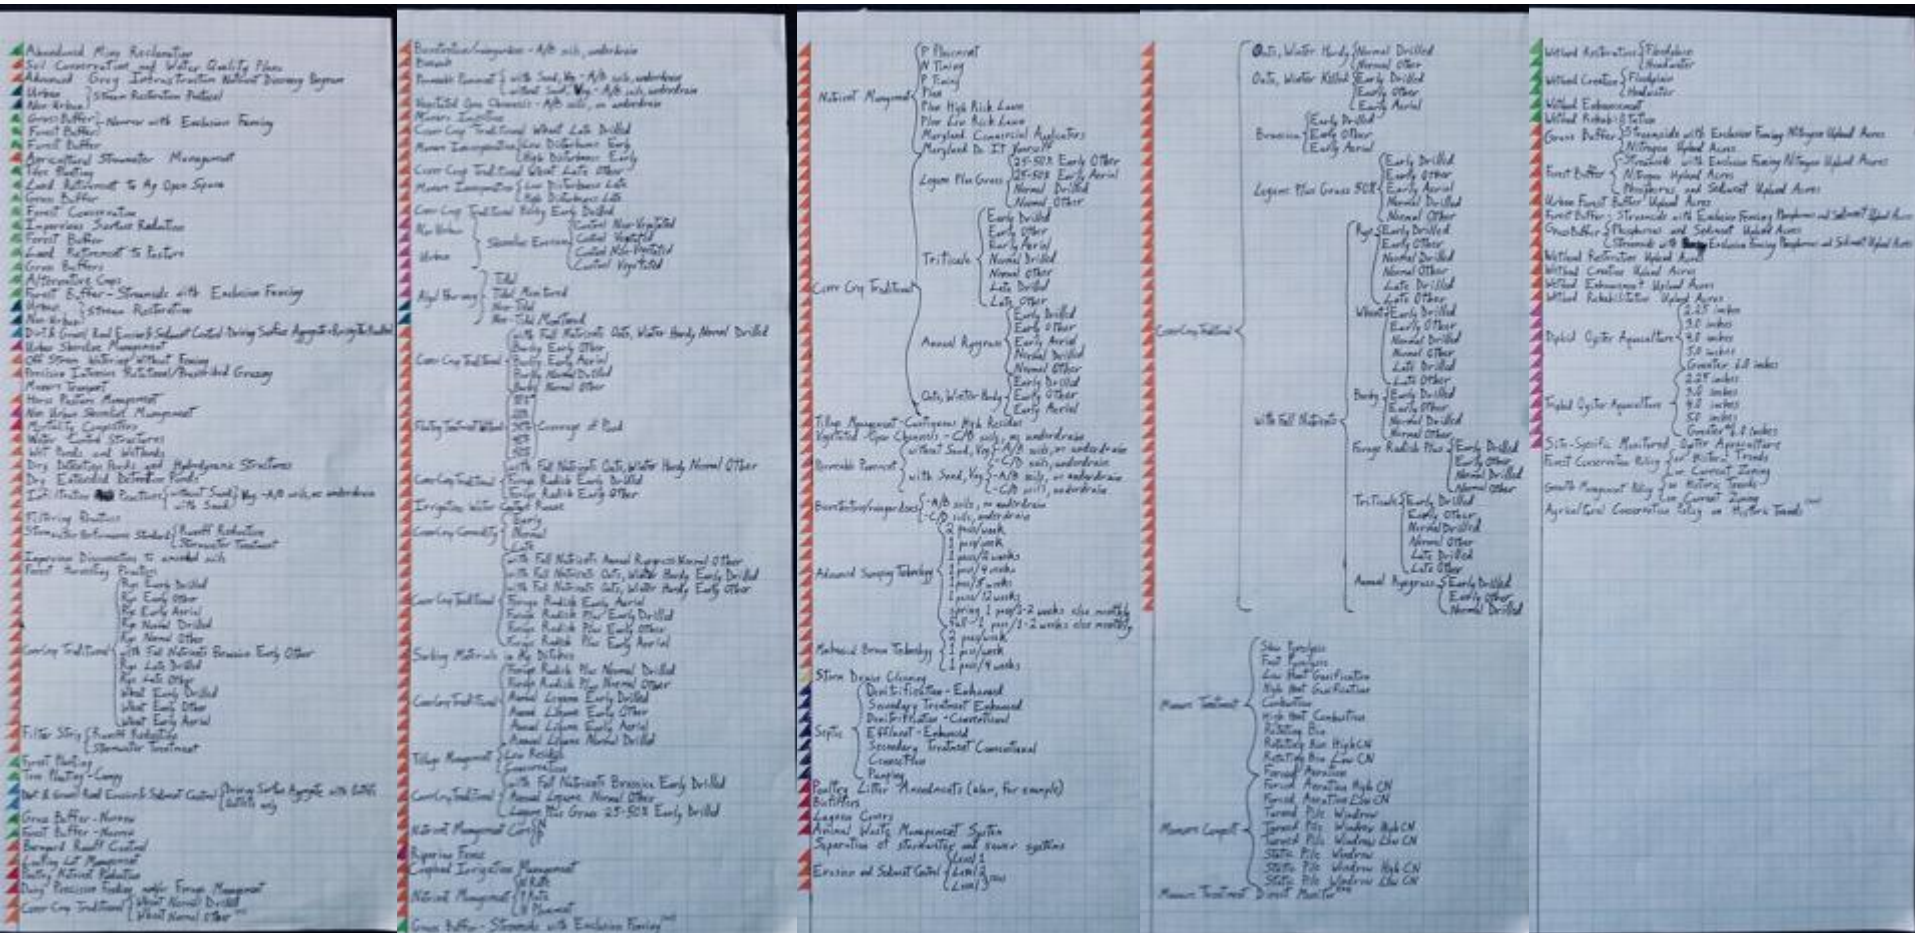 Abandoned Mine Reclamation
Soil Conservation and Water Quality Plans
Advanced Grey Infrastructure Nutrient Discovery Program
Urban
Non-Urban
Stream Restoration Protocol
Grass Buffer
Forest Buffer
Narrow with Exclusion Fencing
Forest Buffer
Agricultural Stormwater Management
Tree Planting
Land Retirement to Ag Open Space
Grass Buffer
Forest Conservation
Impervious Surface Reduction
Forest Buffer
Land Retirement to Pasture
Grass Buffers
Alternative Crops
Forest Buffer - Streamside with Exclusion Fencing
Urban
Non-Urban
Stream Restoration
Dirt & Gravel Road Erosion & Sediment Control - Driving Surface Aggregate +
Urban Shoreline Management
Off Stream Watering Without Fencing
Precision Intensive Rotational/Prescribed Grazing
Manure Transport
Horse Pasture Management
Non Urban Shoreline Management
Mortality Composters
Water Control Structures
Wet Ponds and Wetlands
Dry Detention Ponds and Hydrodynamic Structures
Dry Extended Detention Ponds
Infiltration Practices
without Sand
with Sand
Veg - A/B soils, no underdrain
Filtering Practices
Stormwater Performance Standard
Runoff Reduction
Stormwater Treatment
Impervious Disconnection to amended soils
Forest Harvesting Practices
Cover Crop Traditional
Rye Early Drilled
Rye Early Other
Rye Early Aerial
Rye Normal Drilled
Rye Normal Other
with Fall Nutrients Brassica Early Other
Rye Late Drilled
Rye Late Other
Wheat Early Drilled
Wheat Early Other
Wheat Early Aerial
Filter Strip
Runoff Reduction
Stormwater Treatment
Forest Planting
Tree Planting - Canopy
Dirt & Gravel Road Erosion & Sediment Control
Driving Surface Aggregate with Outlets
Outlets only
Grass Buffer - Narrow
Forest Buffer - Narrow
Barnyard Runoff Control
Loafing Lot Management
Poultry Nutrient Reduction
Dairy Precision Feeding and/or Forage Management
Cover Crop Traditional
Wheat Normal Drilled
Wheat Normal Other
Bioretention/raingardens - A/B soils, underdrain
Bioswale
Permeable Pavement
with Sand, Veg - A/B soils, underdrain
without Sand, Veg - A/B soils, underdrain
Vegetated Open Channels - A/B soils, no underdrain
Manure Injection
Cover Crop Traditional Wheat Late Drilled
Manure Incorporation
Low Disturbance Early
High Disturbance Early
Cover Crop Traditional Wheat Late Other
Manure Incorporation
Low Disturbance Late
High Disturbance Late
Cover Crop Traditional Barley Early Drilled
Non Urban
Urban
Shoreline Erosion
Control Non-Vegetated
Control Vegetated
Control Non-Vegetated
Control Vegetated
Algal Flow-way
Tidal
Tidal Monitored
Non-Tidal
Non-Tidal Monitored
Cover Crop Traditional
with Fall Nutrients Oats, Winter Hardy Normal Drilled
Barley Early Other
Barley Early Aerial
Barley Normal Drilled
Barley Normal Other
Floating Treatment Wetland
10%
20%
30%
40%
50%
Coverage of Pond
Cover Crop Traditional
with Fall Nutrients Oats, Winter Hardy Normal Other
Forage Radish Early Drilled
Forage Radish Early Other
Irrigation Water Capture Reuse
Cover Crop Commodity
Early
Normal
Late
Cover Crop Traditional
with Fall Nutrients Annual Ryegrass Normal Other
with Fall Nutrients Oats, Winter Hardy Early Drilled
with Fall Nutrients Oats, Winter Hardy Early Other
Forage Radish Early Aerial
Forage Radish Plus Early Drilled
Forage Radish Plus Early Other
Forage Radish Plus Early Aerial
Sorbing Materials in Ag Ditches
Cover Crop Traditional
Forage Radish Plus Normal Drilled
Forage Radish Plus Normal Other
Annual Legume Early Drilled
Annual Legume Early Other
Annual Legume Early Aerial
Annual Legume Normal Drilled
Tillage Management
Low Residue
Conservation
Cover Crop Traditional
with Fall Nutrients Brassica Early Drilled
Annual Legume Normal Other
Legume Plus Grass 25-50% Early Drilled
Nutrient Management Core
N
P
Riparian Fence
Cropland Irrigation Management
Nutrient Management
N Rate
P Rate
N Placement
Grass Buffer - Streamside with Exclusion Fencing
Nutrient Management
P Placement
N Timing
P Timing
Plan
Plan High Risk Lawn
Plan Low Risk Lawn
Maryland Commercial Applicators
Maryland Do It Yourself
Cover Crop Traditional
Legume Plus Grass
25-50% Early Other
25-50% Early Aerial
Normal Drilled
Normal Other
Triticale
Early Drilled
Early Other
Early Aerial
Normal Drilled
Normal Other
Late Drilled
Late Other
Annual Ryegrass
Early Drilled
Early Other
Early Aerial
Normal Drilled
Normal Other
Oats, Winter Hardy
Early Drilled
Early Other
Early Aerial
Tillage Management - Continuous High Residue
Vegetated Open Channels - C/D soils, no underdrain
Permeable Pavement
without Sand, Veg
-A/B soils, no underdrain
-C/D soils, underdrain
with Sand, Veg
-A/B soils, no underdrain
-C/D soils, underdrain
Bioretention/raingardens
-A/B soils, no underdrain
-C/D soils, underdrain
Advanced Sweeping Technology
2 pass/week
1 pass/week
1 pass/2 weeks
1 pass/4 weeks
1 pass/8 weeks
1 pass/12 weeks
spring 1 pass/1-2 weeks else monthly
fall - 1 pass/1-2 weeks else monthly
Mechanical Broom Technology
2 pass/week
1 pass/week
1 pass/4 weeks
Storm Drain Cleaning
Septic
Denitrification - Enhanced
Secondary Treatment Enhanced
Denitrification - Conventional
Effluent - Enhanced
Secondary Treatment Conventional
Connection
Pumping
Poultry Litter Amendments (alum, for example)
Biofilters
Lagoon Covers
Animal Waste Management System
Separation of stormwater and sewer systems
Erosion and Sediment Control
Level 1
Level 2
Level 3
Cover Crop Traditional
Oats, Winter Hardy
Normal Drilled
Normal Other
Oats, Winter Killed
Early Drilled
Early Other
Early Aerial
Brassica
Early Drilled
Early Other
Early Aerial
Legume Plus Grass 50%
Early Drilled
Early Other
Early Aerial
Normal Drilled
Normal Other
with Fall Nutrients
Rye
Early Drilled
Early Other
Normal Drilled
Normal Other
Late Drilled
Late Other
Wheat
Early Drilled
Early Other
Normal Drilled
Normal Other
Late Drilled
Late Other
Barley
Early Drilled
Early Other
Normal Drilled
Normal Other
Forage Radish Plus
Early Drilled
Early Other
Normal Drilled
Normal Other
Triticale
Early Drilled
Early Other
Normal Drilled
Normal Other
Late Drilled
Late Other
Annual Ryegrass
Early Drilled
Early Other
Normal Drilled
Manure Treatment
Slow Pyrolysis
Fast Pyrolysis
Low Heat Gasification
High Heat Gasification
Combustion
High Heat Combustion
Manure Compost
Rotating Bin
Rotating Bin High CN
Rotating Bin Low CN
Forced Aeration
Forced Aeration High CN
Forced Aeration Low CN
Turned Pile Windrow
Turned Pile Windrow High CN
Turned Pile Windrow Low CN
Static Pile Windrow
Static Pile Windrow High CN
Static Pile Windrow Low CN
Manure Treatment Direct Monitor
Wetland Restoration
Floodplain
Headwater
Wetland Creation
Floodplain
Headwater
Wetland Enhancement
Wetland Rehabilitation
Grass Buffer
Streamside with Exclusion Fencing Nitrogen Upland Acres
Nitrogen Upland Acres
Forest Buffer
Streamside with Exclusion Fencing Nitrogen Upland Acres
Nitrogen Upland Acres
Phosphorus and Sediment Upland Acres
Urban Forest Buffer Upland Acres
Forest Buffer - Streamside with Exclusion Fencing Phosphorus and Sediment Upland Acres
Grass Buffer
Phosphorus and Sediment Upland Acres
Streamside with Exclusion Fencing Phosphorus and Sediment Upland Acres
Wetland Restoration Upland Acres
Wetland Creation Upland Acres
Wetland Enhancement Upland Acres
Wetland Rehabilitation Upland Acres
Diploid Oyster Aquaculture
2.25 inches
3.0 inches
4.0 inches
5.0 inches
Greater 6.0 inches
Triploid Oyster Aquaculture
2.25 inches
3.0 inches
4.0 inches
5.0 inches
Greater 6.0 inches
Site-Specific Monitored Oyster Aquaculture
Forest Conservation Policy
on Historic Trends
on Current Zoning
Growth Management Policy
on Historic Trends
on Current Zoning
Agricultural Conservation Policy on Historic Trends